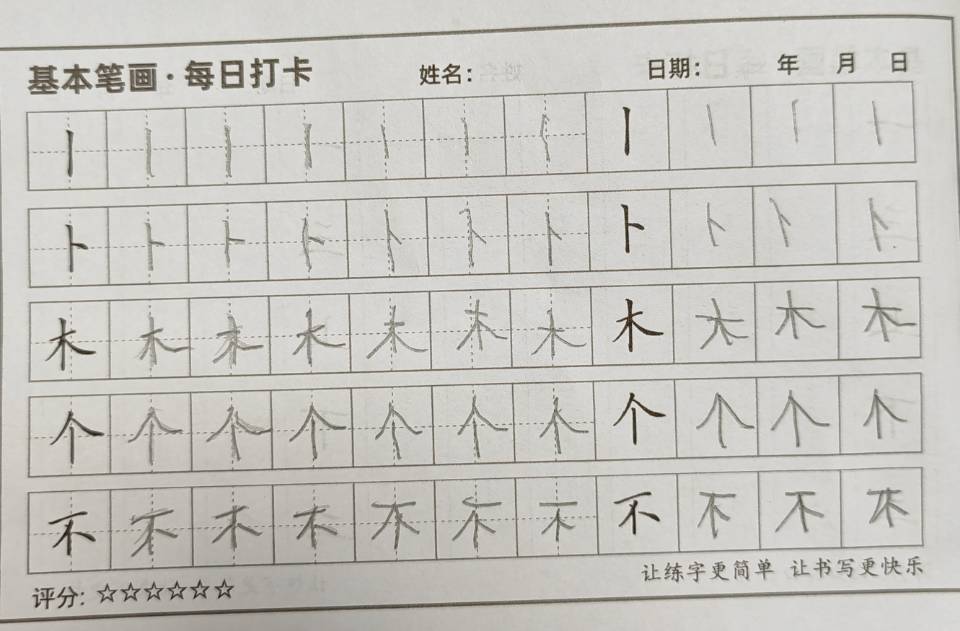 基本笔画·每日打卡 姓名： 日期： 年 月 日
丨 丨 丨 丨 丨 丨 丨 丨 丨 丨 丨
卜 卜 卜 卜 卜 卜 卜 卜 卜 卜 卜
木 木 木 木 木 木 木 木 木 木 木
个 个 个 个 个 个 个 个 个 个 个
不 不 不 不 不 不 不 不 不 不 不
让练字更简单 让书写更快乐
评分: ☆☆☆☆☆☆